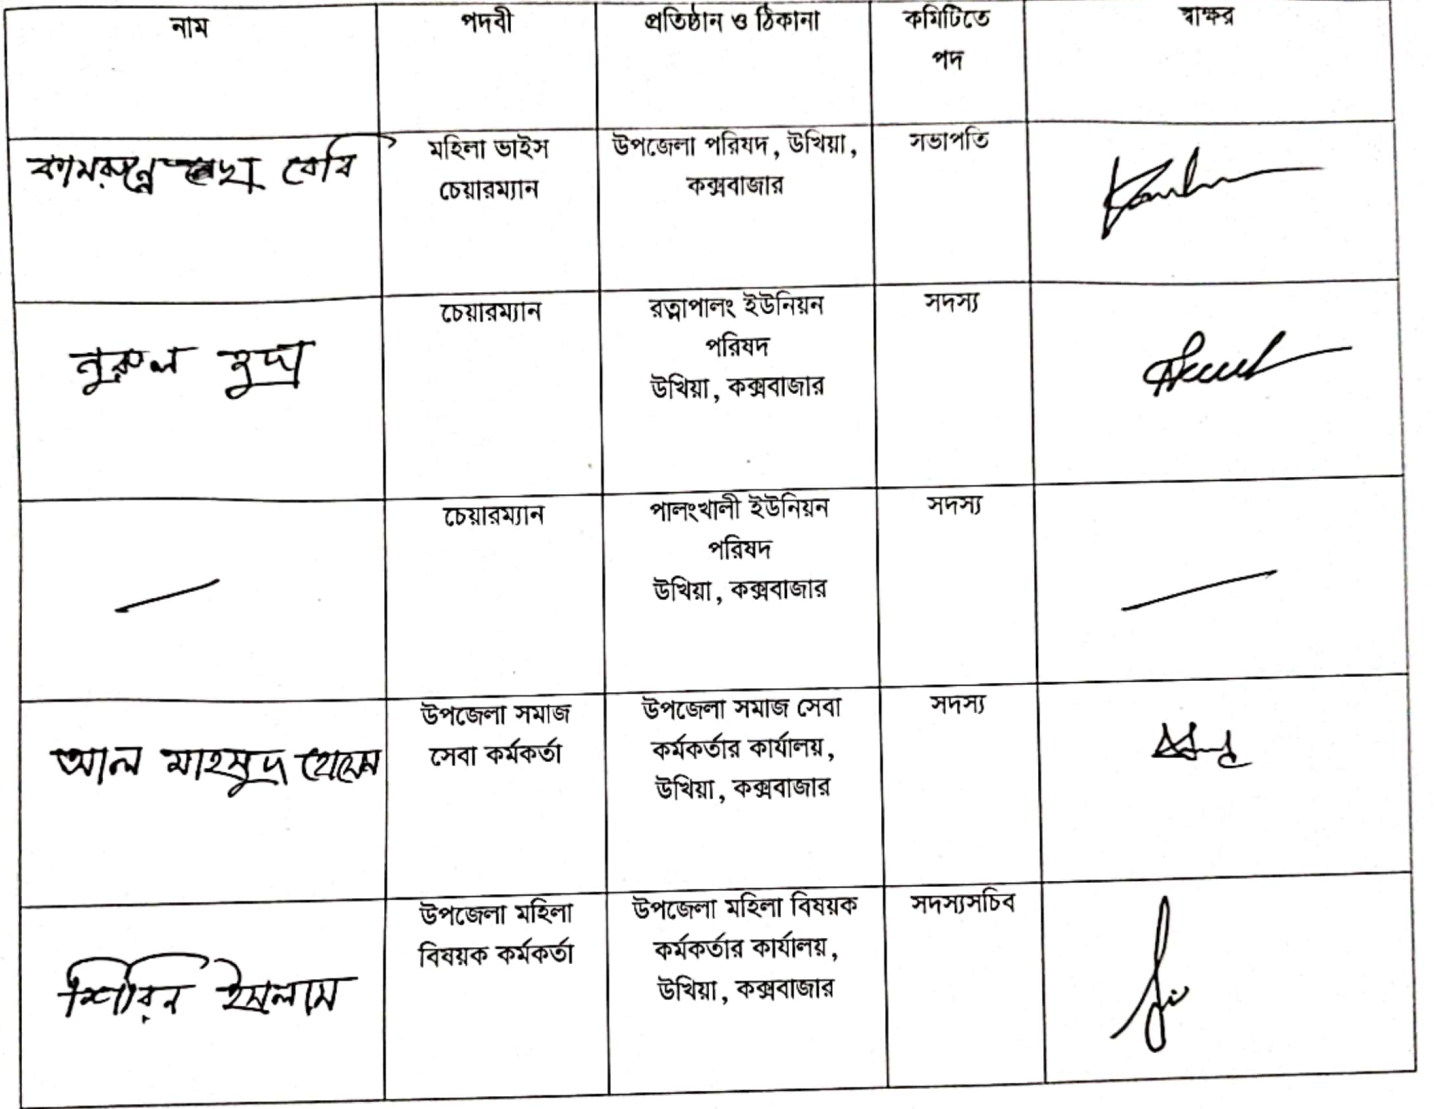 নাম
পদবী
প্রতিষ্ঠান ও ঠিকানা
কমিটিতে
পদ
স্বাক্ষর
কামরুন্নেছা বেবি
মহিলা ভাইস
চেয়ারম্যান
উপজেলা পরিষদ, উখিয়া,
কক্সবাজার
সভাপতি
নুরুল হুদা
চেয়ারম্যান
রত্নাপালং ইউনিয়ন
পরিষদ
উখিয়া, কক্সবাজার
সদস্য
চেয়ারম্যান
পালংখালী ইউনিয়ন
পরিষদ
উখিয়া, কক্সবাজার
সদস্য
আল মাহমুদ হোসেন
উপজেলা সমাজ
সেবা কর্মকর্তা
উপজেলা সমাজ সেবা
কর্মকর্তার কার্যালয়,
উখিয়া, কক্সবাজার
সদস্য
শিরিন ইসলাম
উপজেলা মহিলা
বিষয়ক কর্মকর্তা
উপজেলা মহিলা বিষয়ক
কর্মকর্তার কার্যালয়,
উখিয়া, কক্সবাজার
সদস্যসচিব